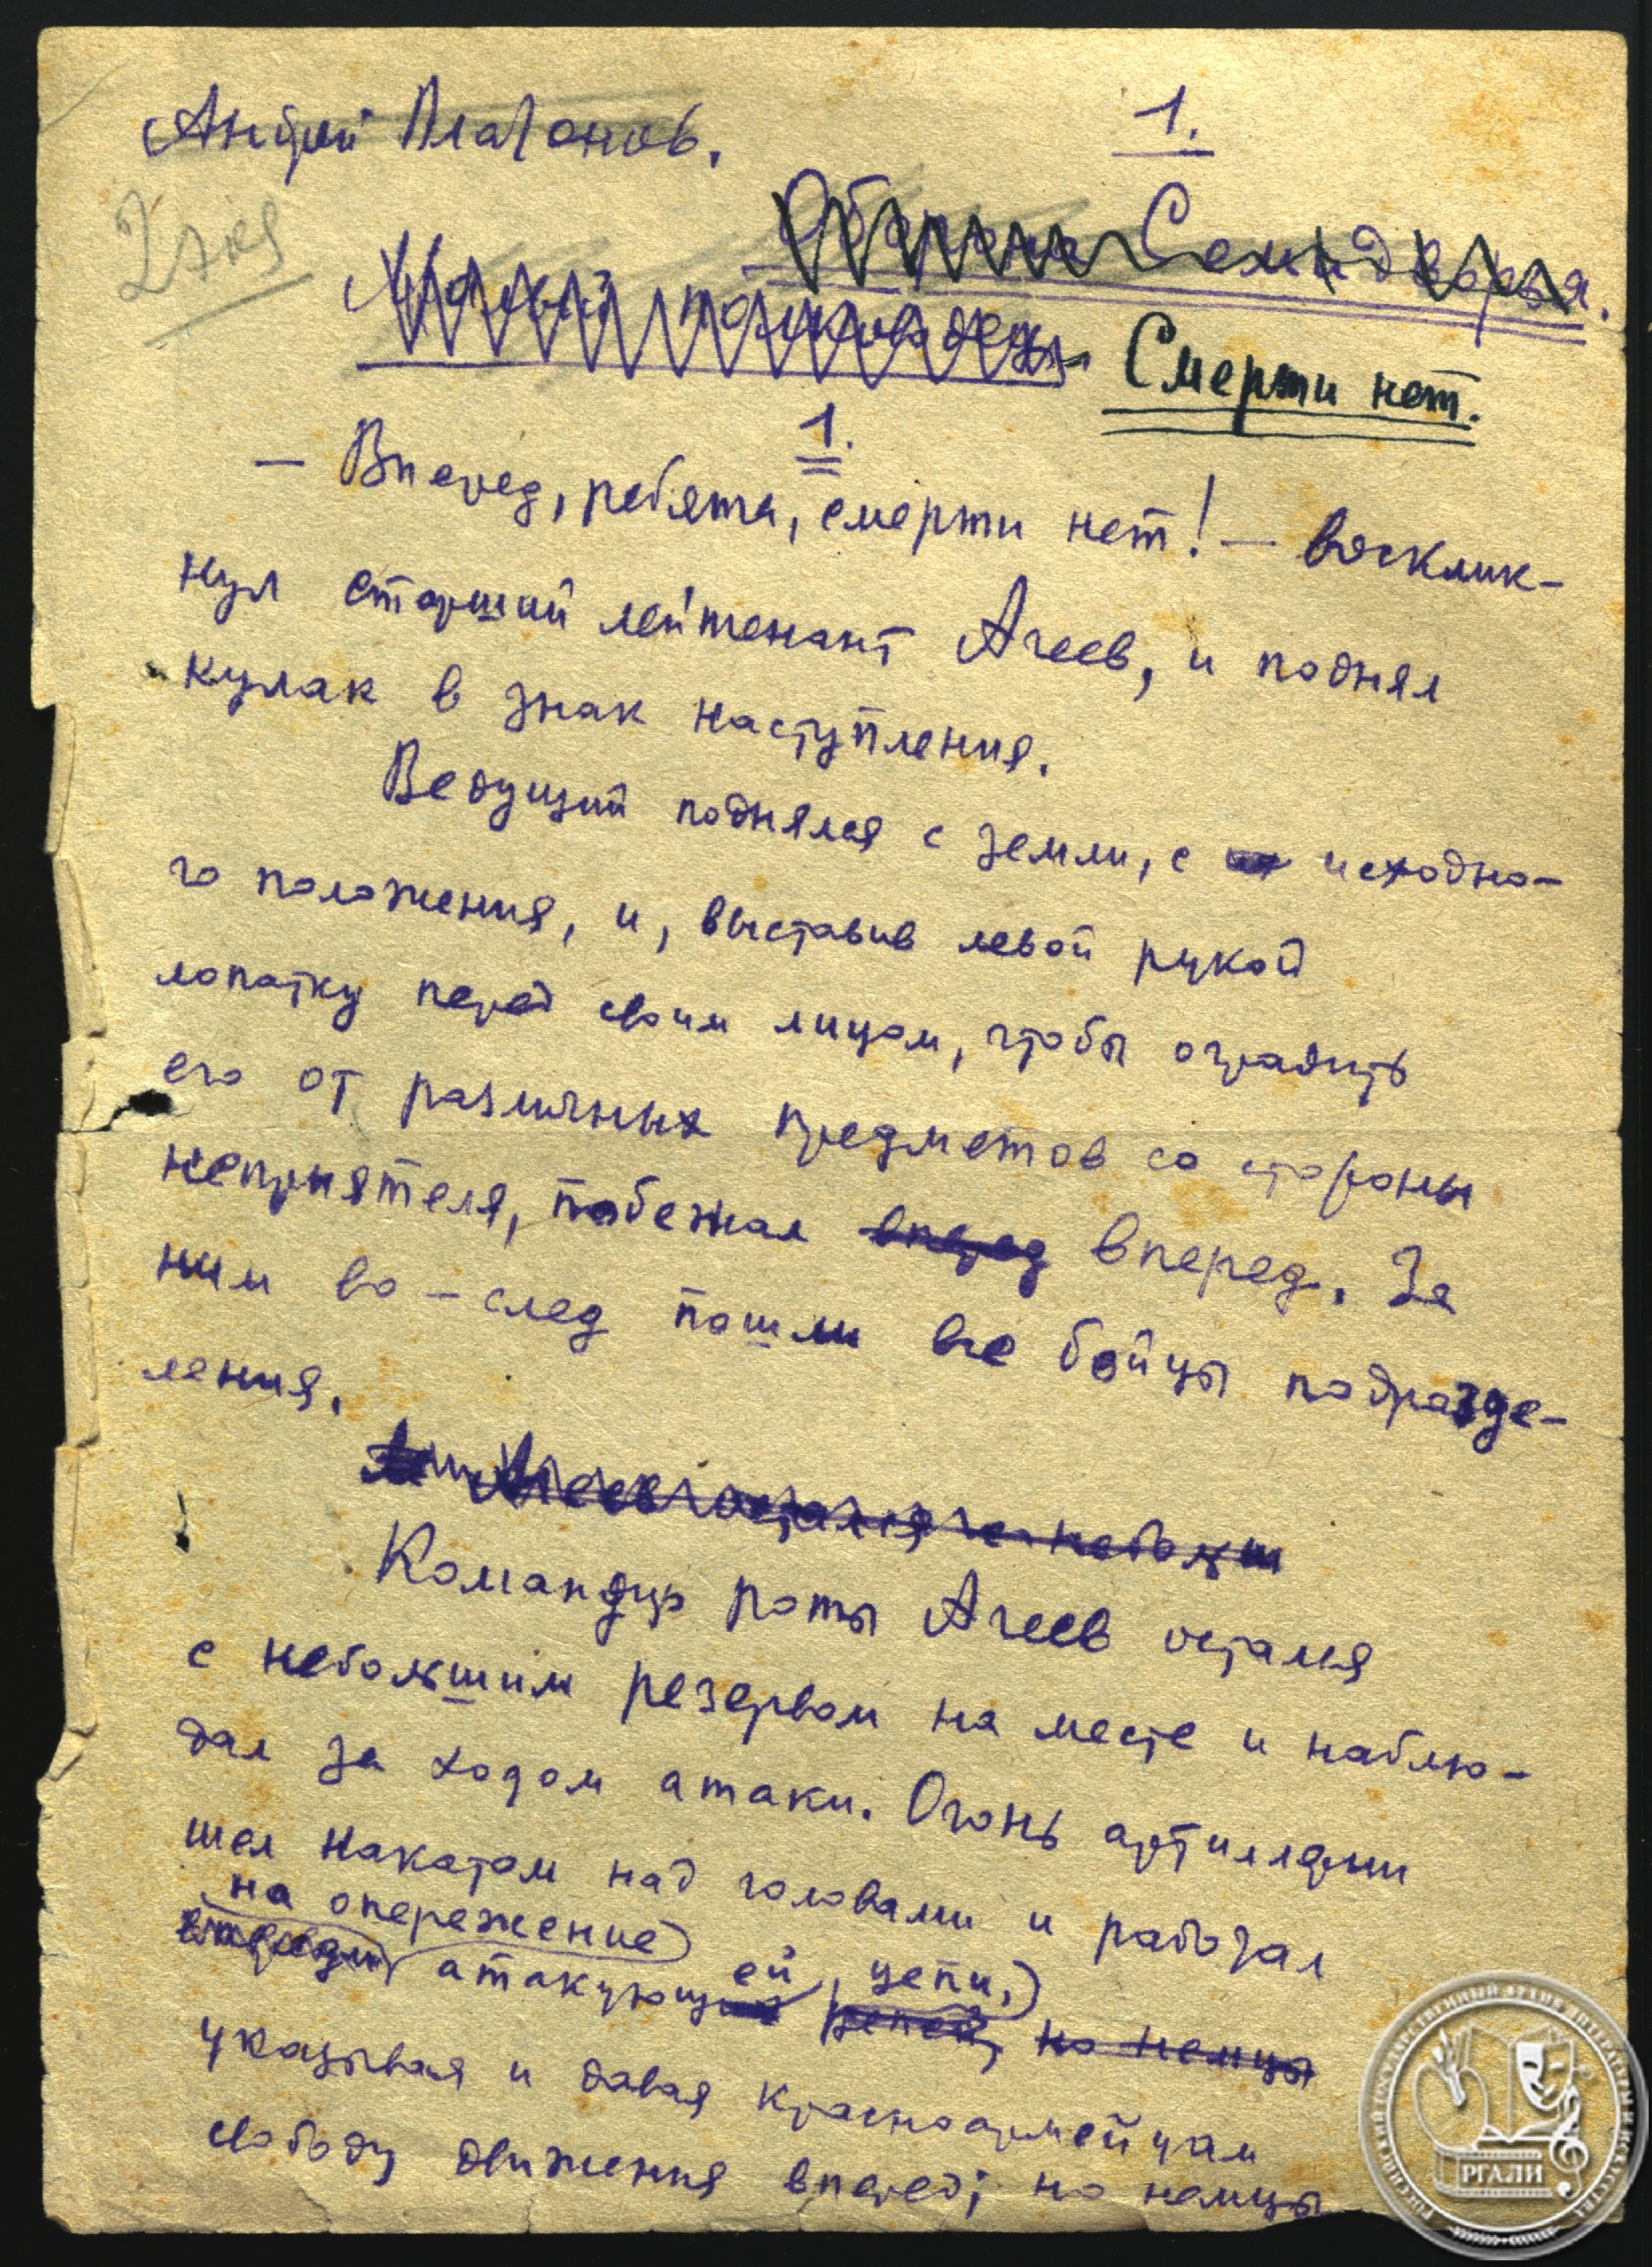 Андрей Платонов.
1.
2 экз
Оборона Семидворья.
Смерти нет.
1.
— Вперед, ребята, смерти нет! — восклик-
нул старший лейтенант Агеев, и поднял
кулак в знак наступления.
Ведущий поднялся с земли, с исходно-
го положения, и, выставив левой рукой
лопатку перед своим лицом, чтобы оградить
его от различных предметов со стороны
неприятеля, побежал вперед вперед. За
ним во-след пошли все бойцы подразде-
ления.
Агеев остался с небольш
Командир роты Агеев остался
с небольшим резервом на месте и наблю-
дал за ходом атаки. Огонь артиллерии
шел накатом над головами и работал
на опережение
впереди атакующей цепи,
цепей, но немцы
указывая и давая красноармейцам
свободу движения вперед; но немцы
РГАЛИ